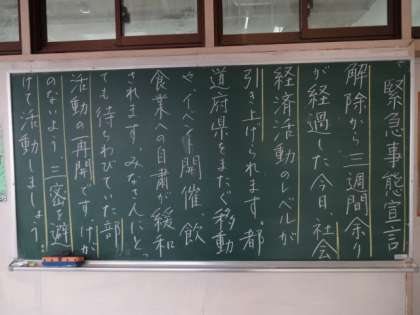 緊急事態宣言
解除から三週間余り
が経過した今日、社会
経済活動のレベルが
引き上げられます。都
道府県をまたぐ移動
や、イベント開催、飲
食業への自粛が緩和
されます。みなさんにとっ
ても待ちわびていた部
活動の再開です。けが
のないよう、三密を避
けて活動しましょう。